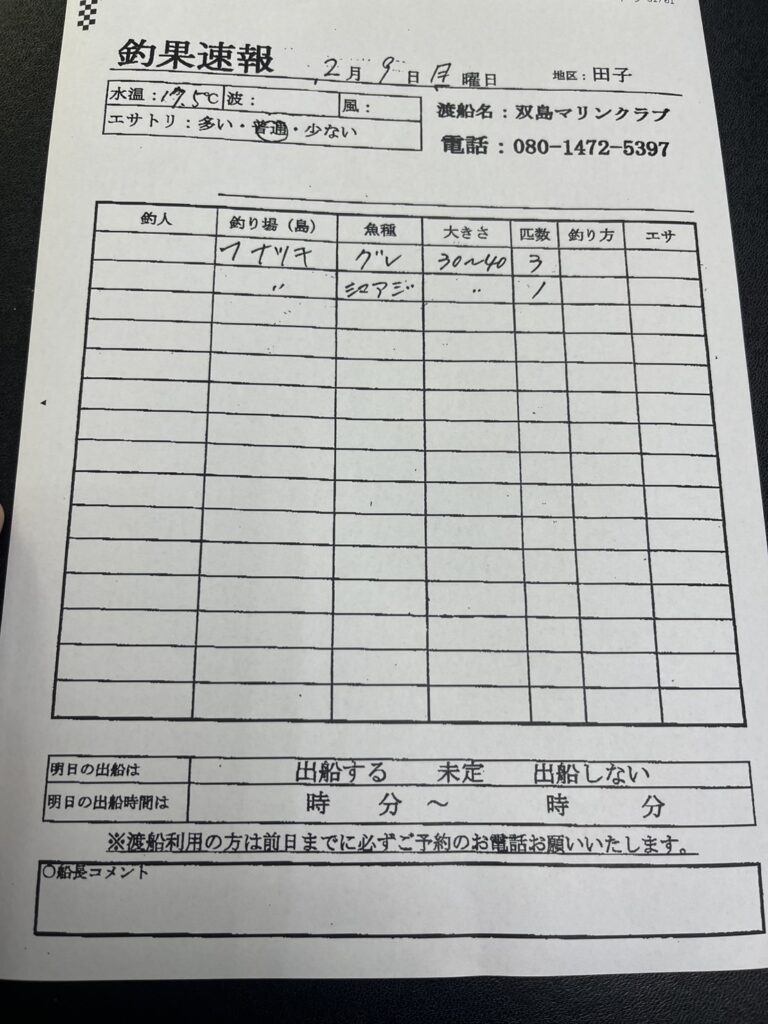 釣果速報 2月9日月曜日 地区：田子
水温：17.5℃ 波： 風：
エサトリ：多い・普通・少ない
渡船名：双島マリンクラブ
電話：080-1472-5397
釣人 釣り場（島） 魚種 大きさ 匹数 釣り方 エサ
フナツキ グレ 30〜40 3
〃 シマアジ 〃 1
明日の出船は 出船する 未定 出船しない
明日の出船時間は 時 分 〜 時 分
※渡船利用の方は前日までに必ずご予約のお電話お願いいたします。
○船長コメント